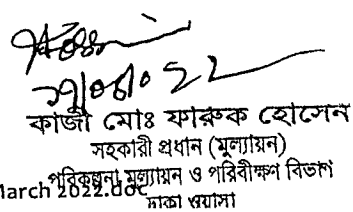 কাজী মোঃ ফারুক হোসেন
সহকারী প্রধান (মূল্যায়ন)
পরিকল্পনা মূল্যায়ন ও পরিবীক্ষণ বিভাগ
larch 2022.doc
ঢাকা ওয়াসা